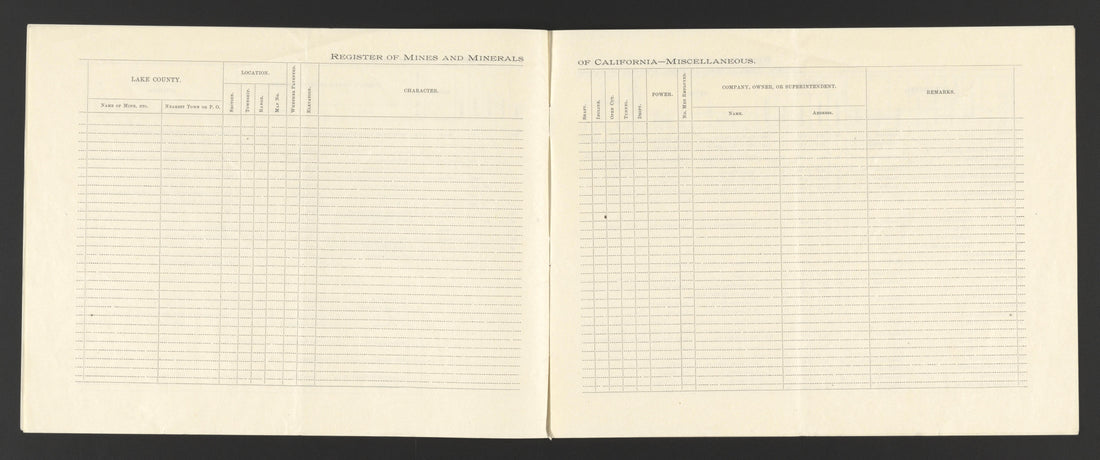 REGISTER OF MINES AND MINERALS
LAKE COUNTY.
LOCATION.
NAME OF MINE, ETC.
NEAREST TOWN OR P. O.
SECTION.
TOWNSHIP.
RANGE.
MAP NO.
WHETHER PATENTED.
ELEVATION.
CHARACTER.
OF CALIFORNIA—MISCELLANEOUS.
SHAFT.
INCLINE.
OPEN CUT.
TUNNEL.
DRIFT.
POWER.
NO. MEN EMPLOYED.
COMPANY, OWNER, OR SUPERINTENDENT.
NAME.
ADDRESS.
REMARKS.